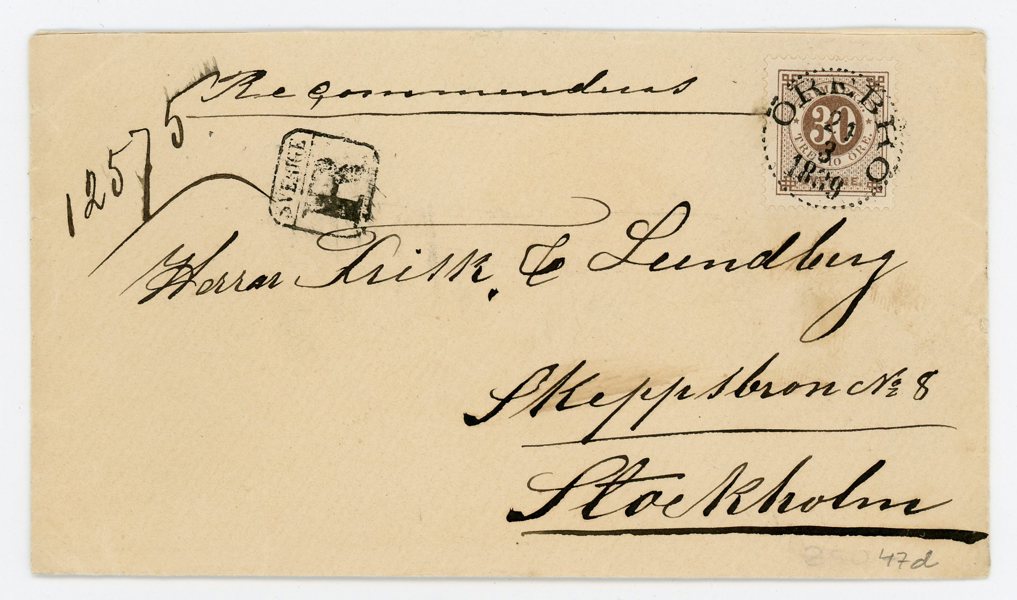 Recommenderas
12575
SVERIGE
R
30
TRETTIO ÖRE.
ÖREBRO
21
3
1889
Herrar Frisk & Lundberg
Skeppsbron No 8
Stockholm
47d